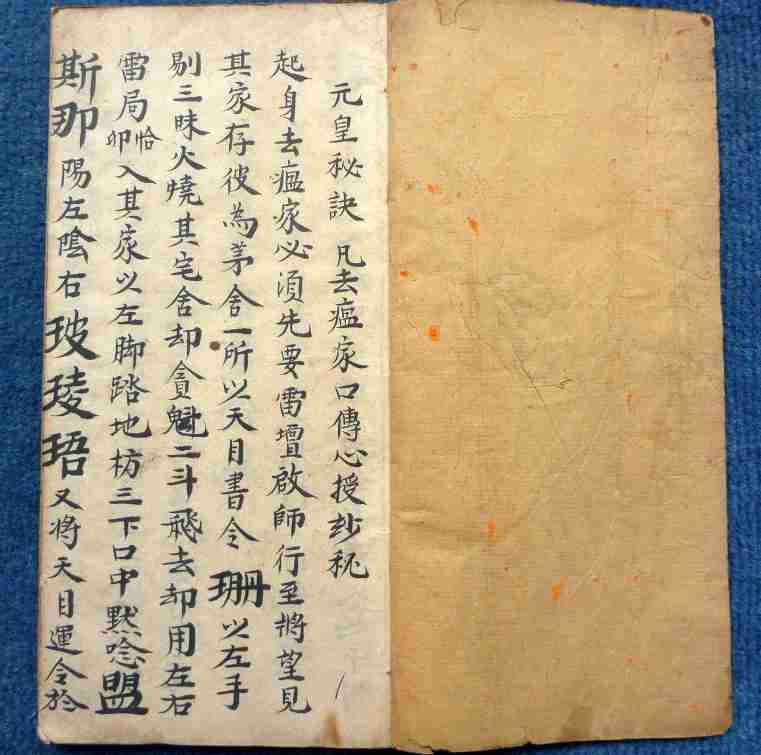 元皇秘訣 凡去瘟家口傳心授玅秘
起身去瘟家必須先要雷壇啟師行至將望見
其家存彼為茅舍一所以天目書令 珊 以左手
剔三昧火燒其宅舍却貪魁二斗飛去却用左右
雷局卯恰入其家以左脚踏地枋三下口中默唸 盟
斯那 陽左陰右 玻㻏珸 又將天目運令於